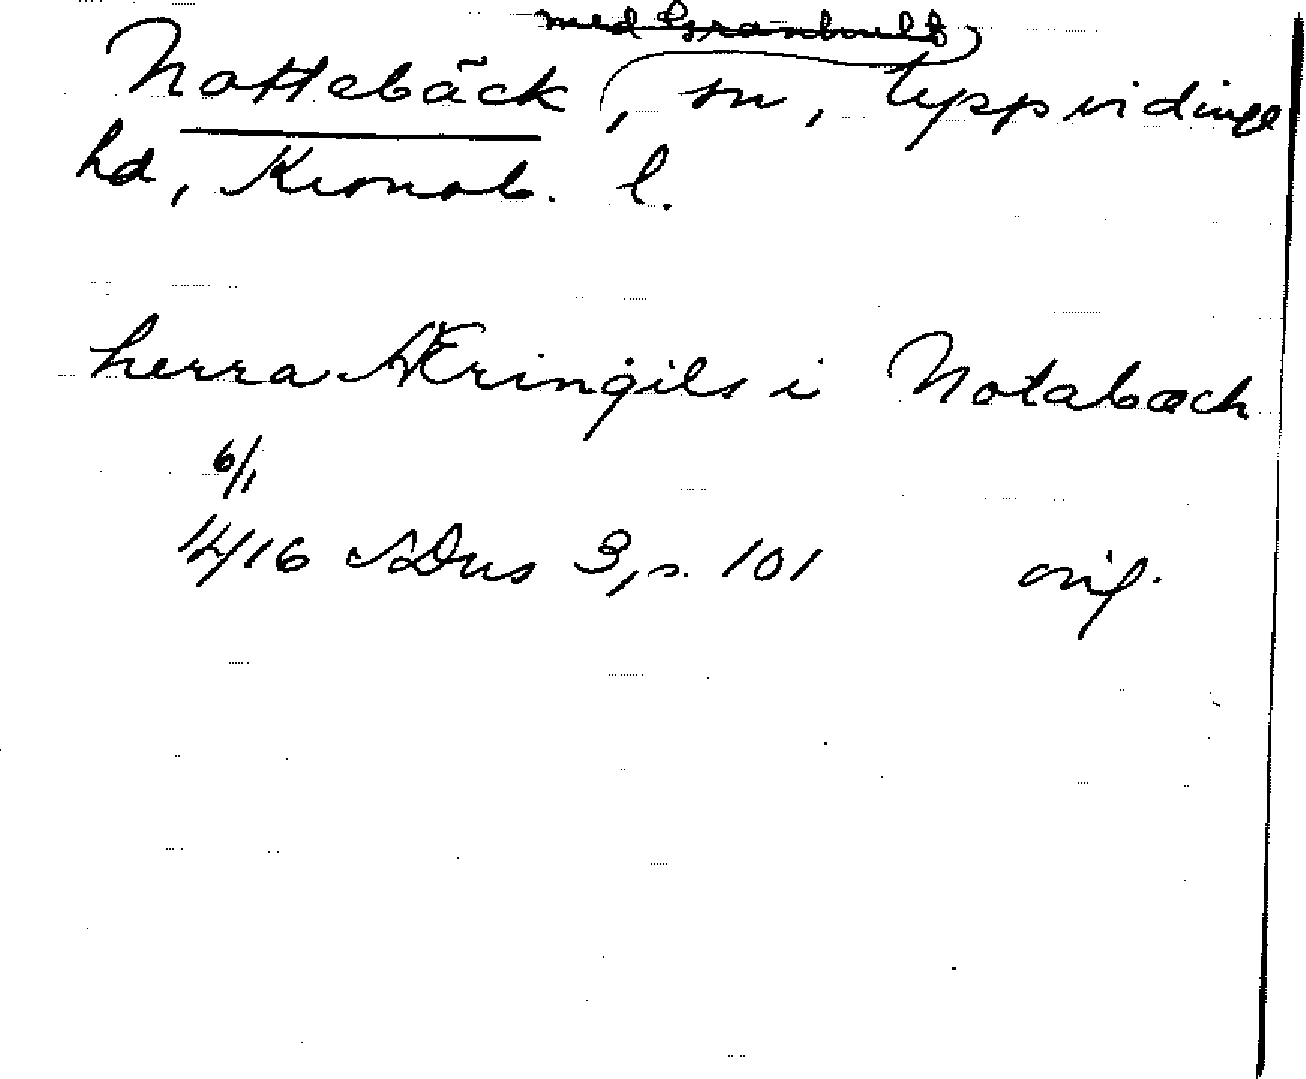 med Granhult
Nottebäck, sn, Uppvidinge
hd, Kronob. l.
herra Æringils i Notabæck
6/1
1416 SDns 3, s. 101 orig.